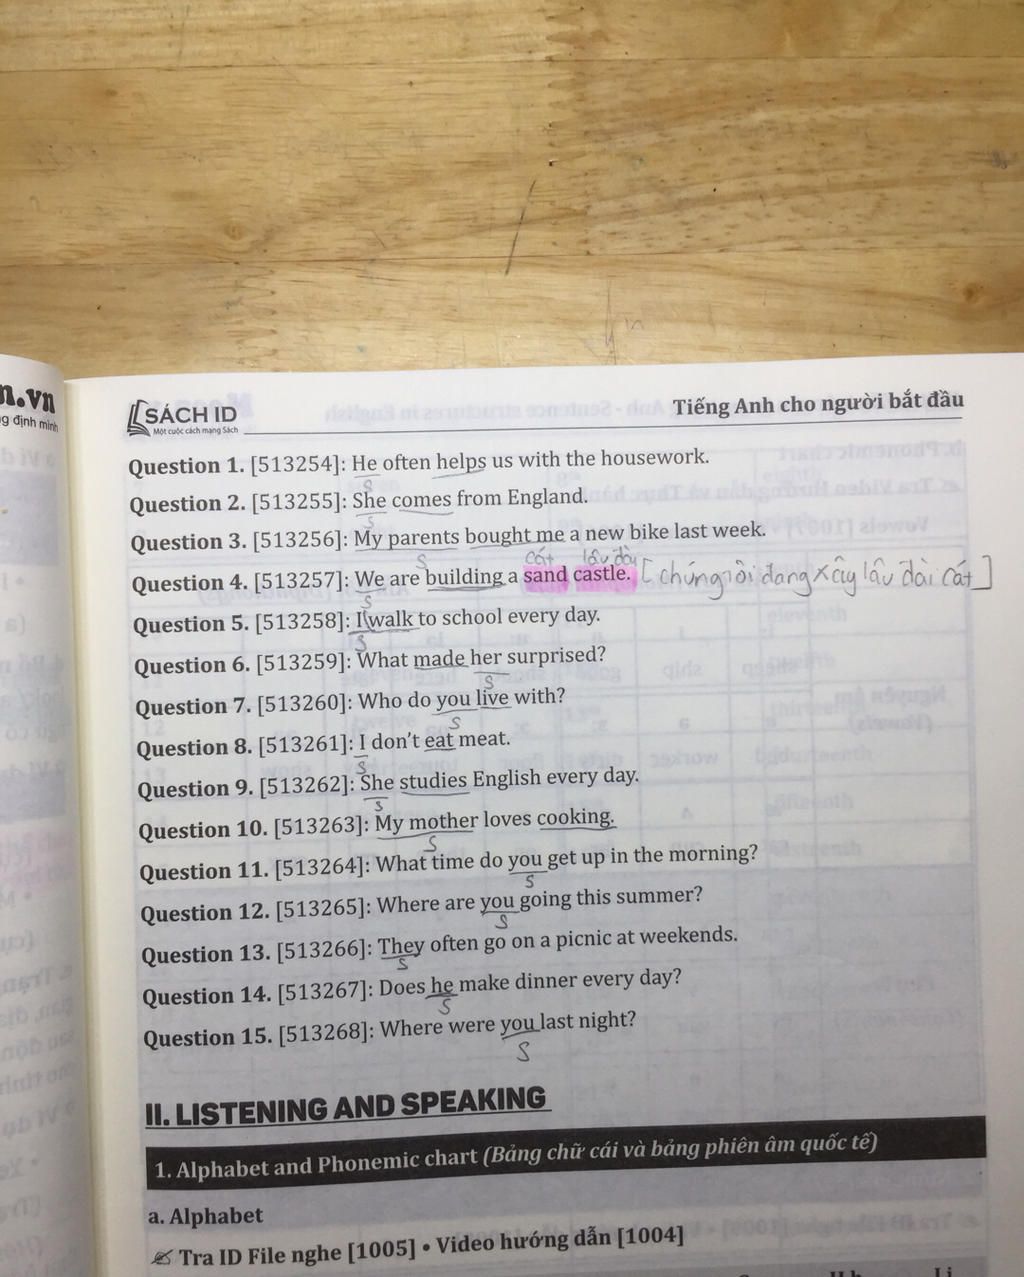 n.vn
g định mình
SÁCH ID
Một cuộc cách mạng Sách
Tiếng Anh cho người bắt đầu
Question 1. [513254]: He often helps us with the housework.
S
Question 2. [513255]: She comes from England.
S
Question 3. [513256]: My parents bought me a new bike last week.
S
cát lâu đài
Question 4. [513257]: We are building a sand castle. [chúng tôi đang xây lâu đài cát]
S
Question 5. [513258]: I walk to school every day.
S
Question 6. [513259]: What made her surprised?
S
Question 7. [513260]: Who do you live with?
S
Question 8. [513261]: I don't eat meat.
S
Question 9. [513262]: She studies English every day.
S
Question 10. [513263]: My mother loves cooking.
S
Question 11. [513264]: What time do you get up in the morning?
S
Question 12. [513265]: Where are you going this summer?
S
Question 13. [513266]: They often go on a picnic at weekends.
S
Question 14. [513267]: Does he make dinner every day?
S
Question 15. [513268]: Where were you last night?
S
II. LISTENING AND SPEAKING
1. Alphabet and Phonemic chart (Bảng chữ cái và bảng phiên âm quốc tế)
a. Alphabet
Tra ID File nghe [1005] • Video hướng dẫn [1004]